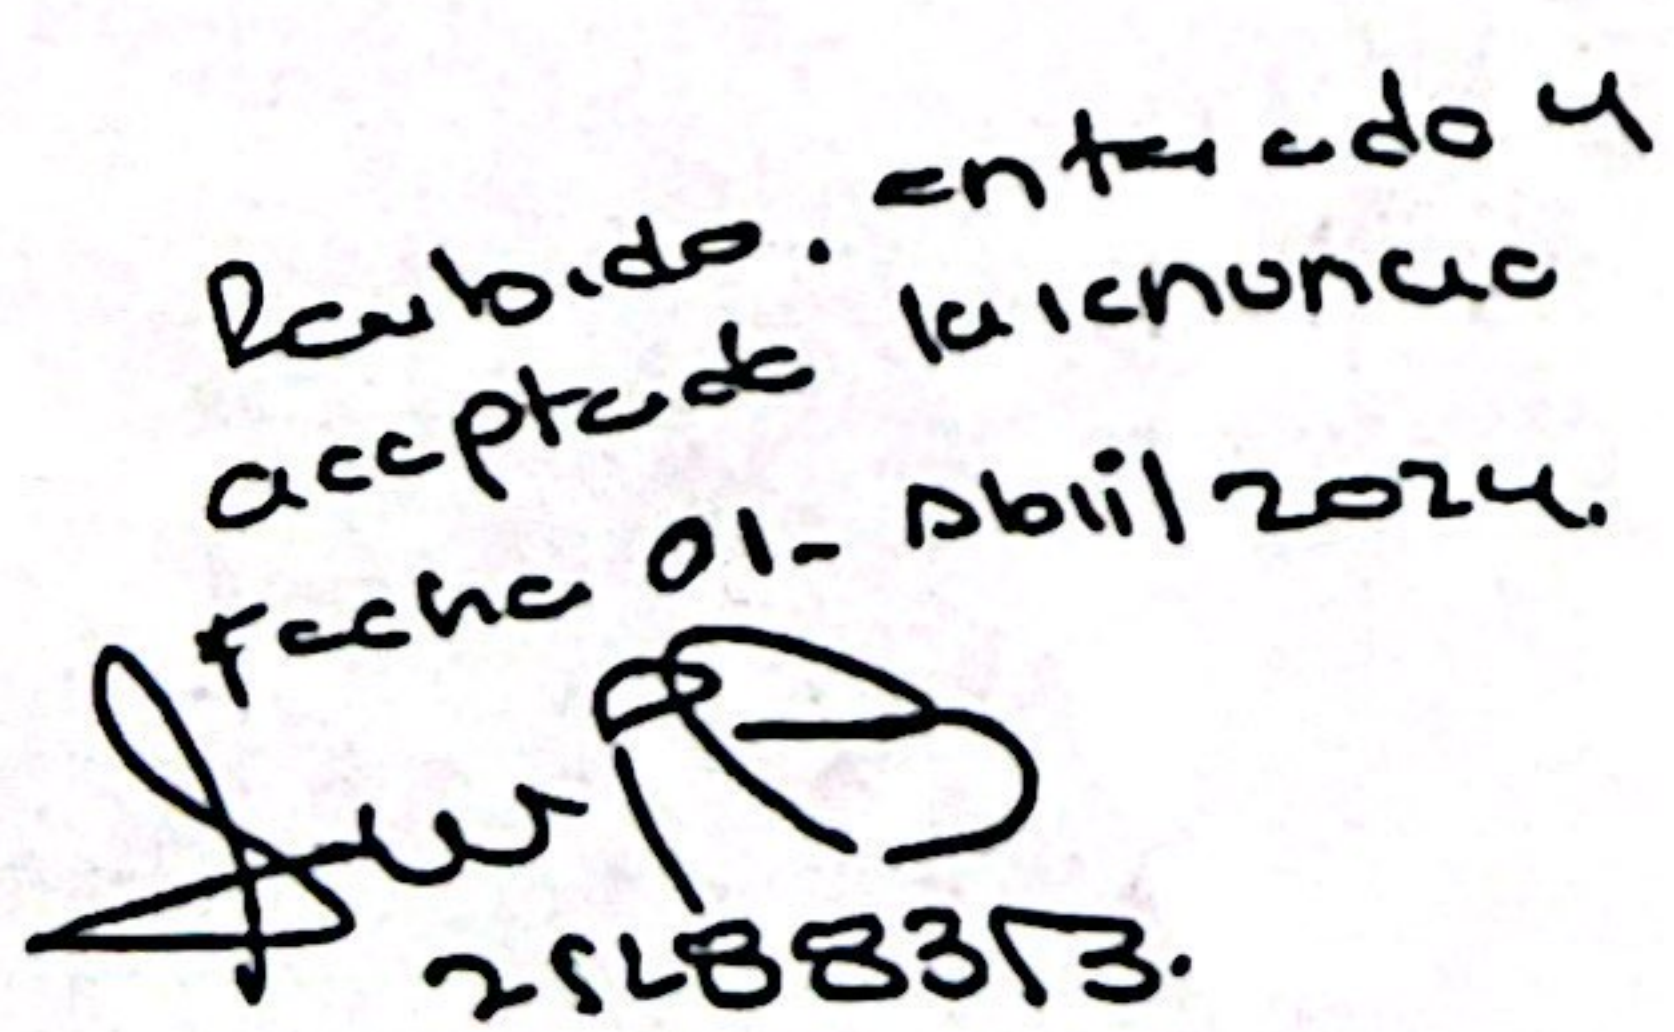 Recibido. enterado y
aceptada la renuncia
Fecha 01- Abril 2024.